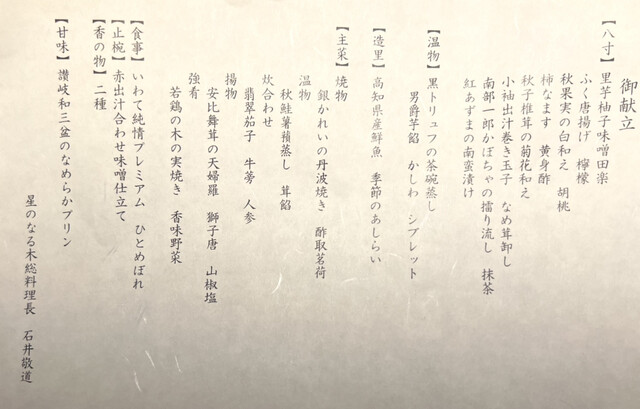 御献立
【八寸】 里芋柚子味噌田楽
ふく唐揚げ 檸檬
秋果実の白和え 胡桃
柿なます 黄身酢
秋子椎茸の菊花和え
小袖出汁巻き玉子 なめ茸卸し
南部一郎かぼちゃの擂り流し 抹茶
紅あずまの南蛮漬け
【温物】 黒トリュフの茶碗蒸し
男爵芋餡 かしわ シブレット
【造里】 高知県産鮮魚 季節のあしらい
【主菜】 焼物
銀かれいの丹波焼き 酢取茗荷
温物
秋鮭薯蕷蒸し 茸餡
炊合わせ
翡翠茄子 牛蒡 人参
揚物
安比舞茸の天婦羅 獅子唐 山椒塩
強肴
若鶏の木の実焼き 香味野菜
【食事】 いわて純情プレミアム ひとめぼれ
【止椀】 赤出汁合わせ味噌仕立て
【香の物】 二種
【甘味】 讃岐和三盆のなめらかプリン
星のなる木総料理長 石井敬道